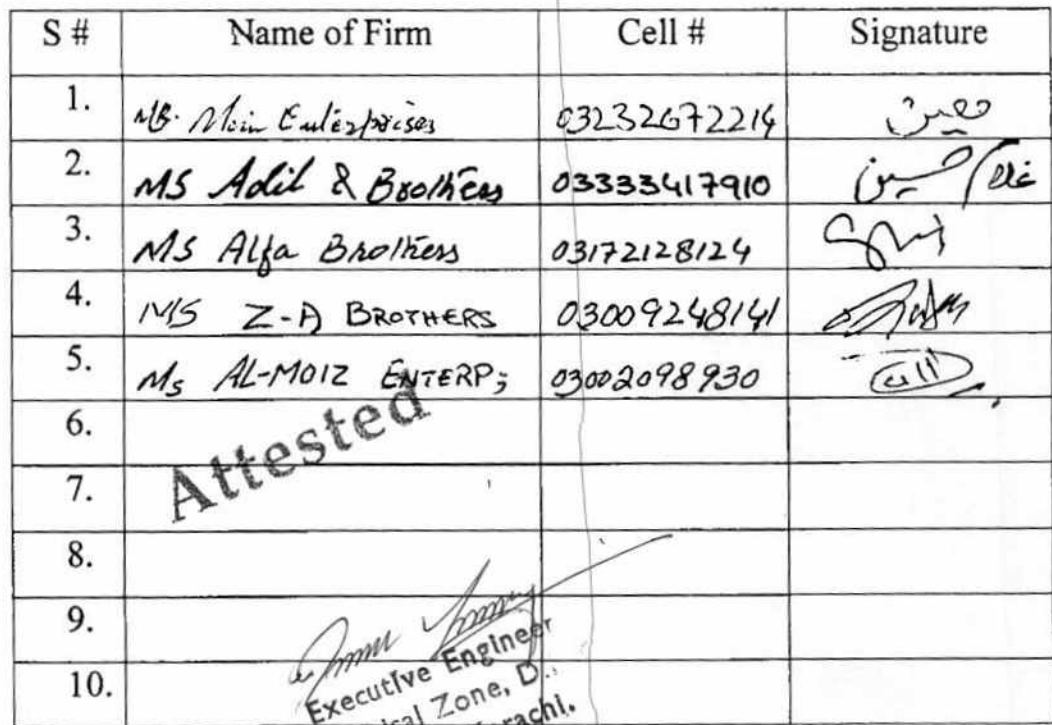 S # Name of Firm Cell # Signature
1. MS. Moin Enterprises 03232672214 معین
2. MS Adil & Brothers 03333417910 غلام حسین
3. MS Alfa Brothers 03172128124
4. M/S Z-A BROTHERS 03009248141
5. Ms AL-MOIZ ENTERP; 03002098930
6.
Attested
7.
8.
9.
Executive Engineer
10.
Zone, D.